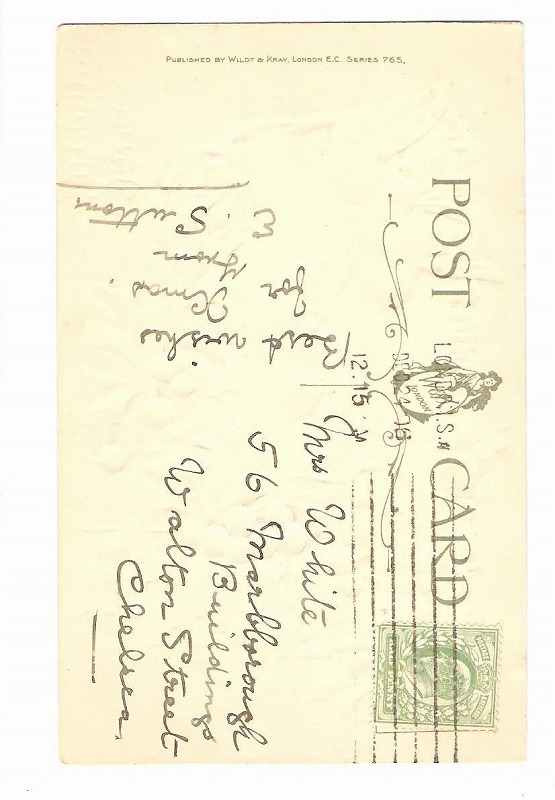 PUBLISHED BY WILDT & KRAY, LONDON E.C. SERIES 765.
POST CARD
LONDON
12.15
Best wishes
for Xmas.
from
E. Sutton
Mrs White
56 Marlborough
Buildings
Walton Street
Chelsea.